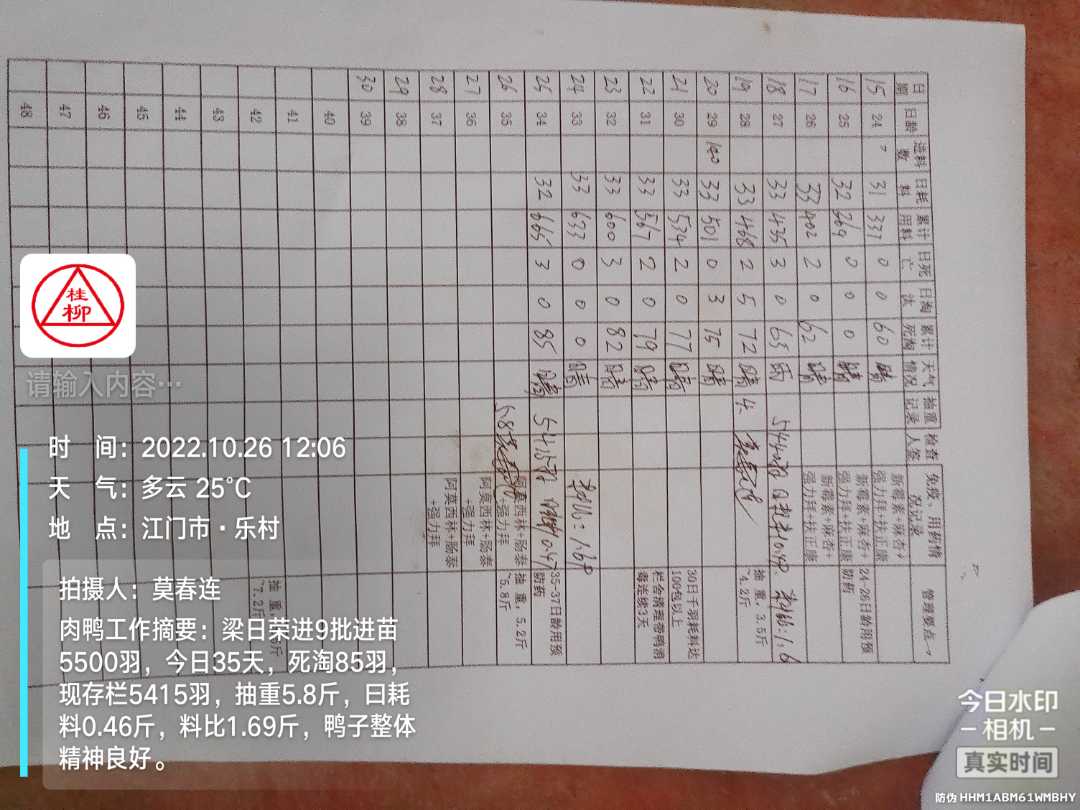 日期 日龄 进料数 日耗料 累计用料 日死亡 日淘汰 累计死淘 天气情况 抽重记录 检查人签 免疫、用药情况记录 管理要点
15 24 31 337 0 0 60 晴 新霉素+麻杏+强力拜+扶正康
16 25 32 369 0 0 0 晴 新霉素+麻杏+强力拜+扶正康 24-26日龄用预防药
17 26 33 402 2 0 62 晴 新霉素+麻杏+强力拜+扶正康
18 27 33 435 3 0 65 雨
19 28 33 468 2 5 72 晴 抽重,3.5斤~4.2斤
20 29 100 33 501 0 3 75 晴
21 30 33 534 2 0 77 晴 30日千羽耗料达100包以上
22 31 33 567 2 0 79 晴 栏舍清理带鸭消毒连续3天
23 32 33 600 3 0 82 晴
24 33 33 633 0 0 0 晴 料比:1.69
25 34 32 665 3 0 85 晴 35-37日龄用预防药
26 35 阿莫西林+肠泰+强力拜 抽重,5.2斤~5.8斤
27 36 阿莫西林+肠泰+强力拜
28 37 阿莫西林+肠泰+强力拜
29 38
30 39
40
41
42 抽重
~7.2斤
43
44
45
46
47
48
桂
柳
请输入内容…
时 间:2022.10.26 12:06
天 气:多云 25℃
地 点:江门市·乐村
拍摄人:莫春连
肉鸭工作摘要:梁日荣进9批进苗
5500羽,今日35天,死淘85羽,
现存栏5415羽,抽重5.8斤,日耗
料0.46斤,料比1.69斤,鸭子整体
精神良好。
今日水印
相机
真实时间
防伪 HHM1ABM61WMBHY